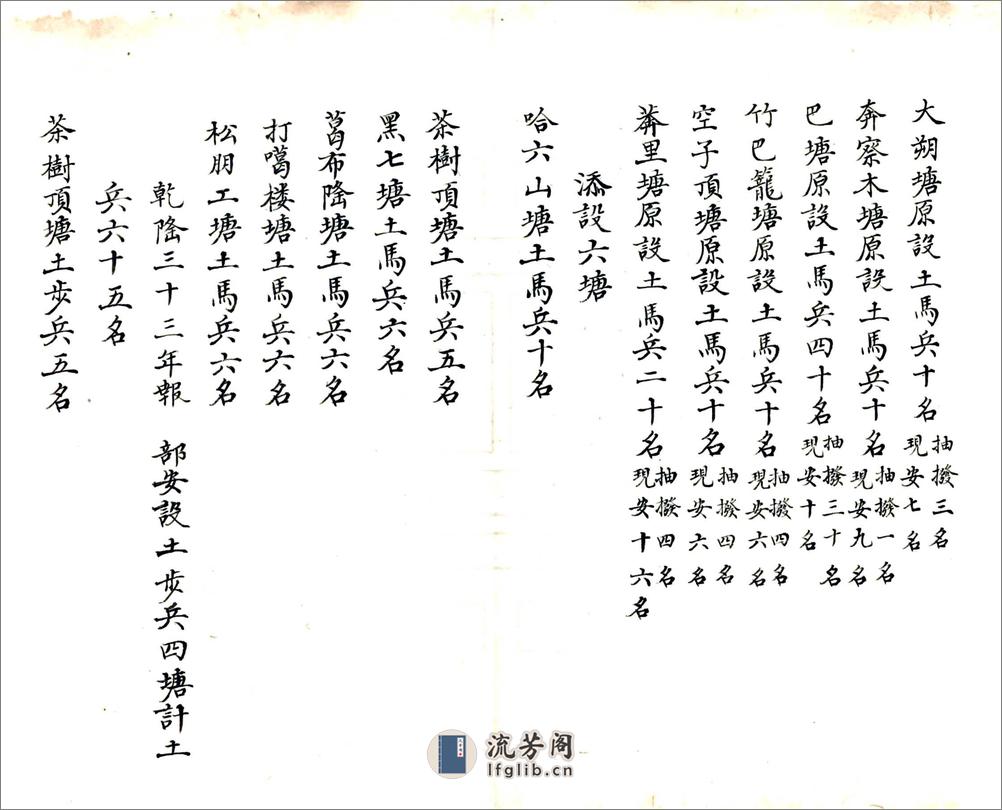 大朔塘原設土馬兵十名抽撥三名現安七名
奔察木塘原設土馬兵十名抽撥一名現安九名
巴塘原設土馬兵四十名抽撥三十名現安十名
竹巴籠塘原設土馬兵十名抽撥四名現安六名
空子頂塘原設土馬兵十名抽撥四名現安六名
莽里塘原設土馬兵二十名抽撥四名現安十六名
添設六塘
哈六山塘土馬兵十名
茶樹頂塘土馬兵五名
黑七塘土馬兵六名
葛布隆塘土馬兵六名
打噶楼塘土馬兵六名
松朋工塘土馬兵六名
乾隆三十三年報 部安設土步兵四塘計土
兵六十五名
茶樹頂塘土步兵五名
流芳阁
lfglib.cn